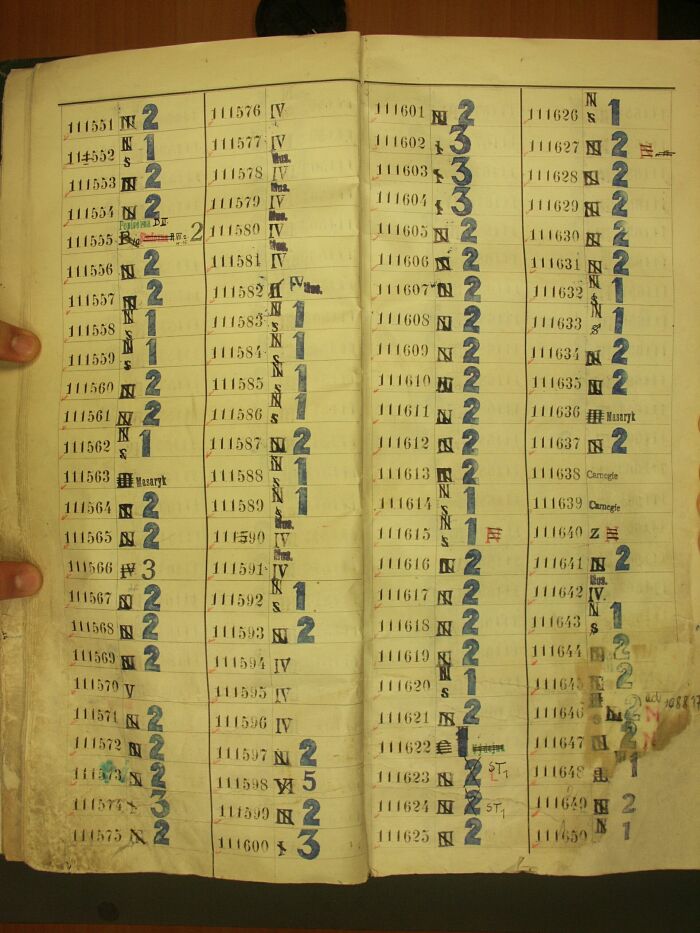 111551 N 2
111552 N s 1
111553 N 2
111554 N 2
111555 2
111556 N 2
111557 N 2
111558 N s 1
111559 N s 1
111560 N 2
111561 N 2
111562 N s 1
111563 Masaryk
111564 N 2
111565 N 2
111566 IV 3
111567 N 2
111568 N 2
111569 N 2
111570 V
111571 N 2
111572 N 2
111573 N 2
111574 3
111575 N 2
111576 IV
111577 IV
Mus.
111578 IV
Mus.
111579 IV
Mus.
111580 IV
Mus.
111581 IV
111582 IV Mus.
111583 N s 1
111584 N s 1
111585 N s 1
111586 N s 1
111587 N 2
111588 N s 1
111589 N s 1
Mus.
111590 IV
Mus.
111591 IV
111592 N s 1
111593 N 2
111594 IV
111595 IV
111596 IV
111597 N 2
111598 VI 5
111599 N 2
111600 3
111601 N 2
111602 3
111603 3
111604 3
111605 N 2
111606 N 2
111607 N 2
111608 N 2
111609 N 2
111610 N 2
111611 N 2
111612 N 2
111613 N 2
111614 N s 1
111615 N s 1
111616 N 2
111617 N 2
111618 N 2
111619 N 2
111620 N s 1
111621 N 2
111622 1
111623 N 2 ST1
111624 N 2 ST1
111625 N 2
111626 N s 1
111627 N 2
111628 N 2
111629 N 2
111630 N 2
111631 N 2
111632 N s 1
111633 N s 1
111634 N 2
111635 N 2
111636 Masaryk
111637 N 2
111638 Carnegie
111639 Carnegie
111640 Z
111641 N 2
Mus.
111642 IV.
111643 N s 1
111644 N 2
111645 2
111646 N s 2
111647 N 2
111648 1
111649 N 2
111650 N 1